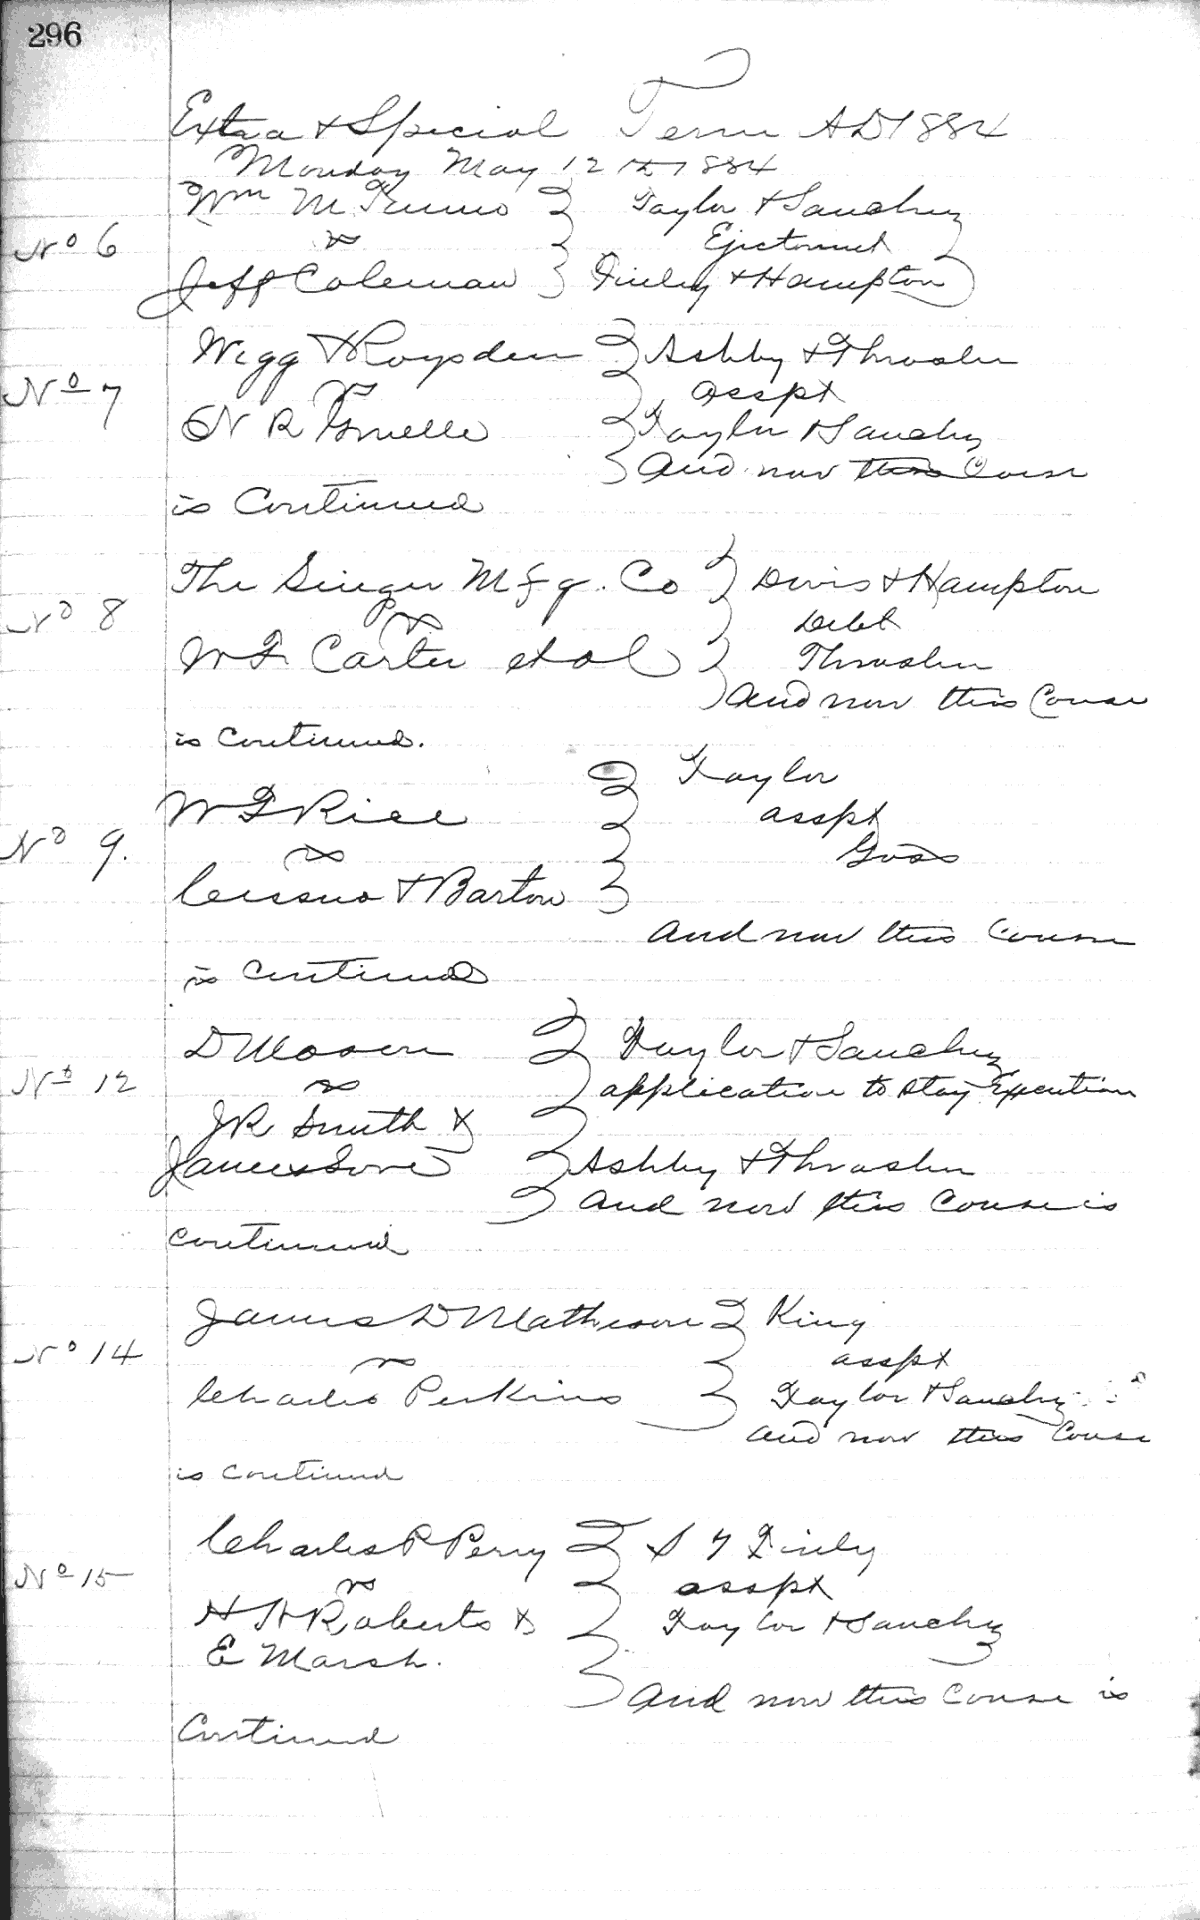 296
Extra & Special Term AD 1884
Monday May 12th 1884
Wm M Taylor & Sanchez
No 6 vs Ejectment
Jeff Coleman Finley & Hampton
Wigg & Roysden Ashby & Thrasher
No 7 vs asspt
N R Gruelle Taylor & Sanchez
And now this Couse
is Continued
The Singer Mfg. Co Davis & Hampton
No 8 vs Debt
W F Carter et al Thrasher
And now this Couse
is continued.
Taylor
W F Rice asspt
No 9. vs Goss
& Barton
And now this Couse
is Continued
D Moson Taylor & Sanchez
No 12 vs application to stay Execution
J R Smith &
James Ashby & Thrasher
And now this Couse is
continued
James D Matheson King
No 14 vs asspt
Charles Perkins Taylor & Sanchez
And now this Couse
is continued
Charles P Perry S Y Finley
No 15 vs asspt
H H Roberts & Taylor & Sanchez
E Marsh.
And now this Couse is
Continued